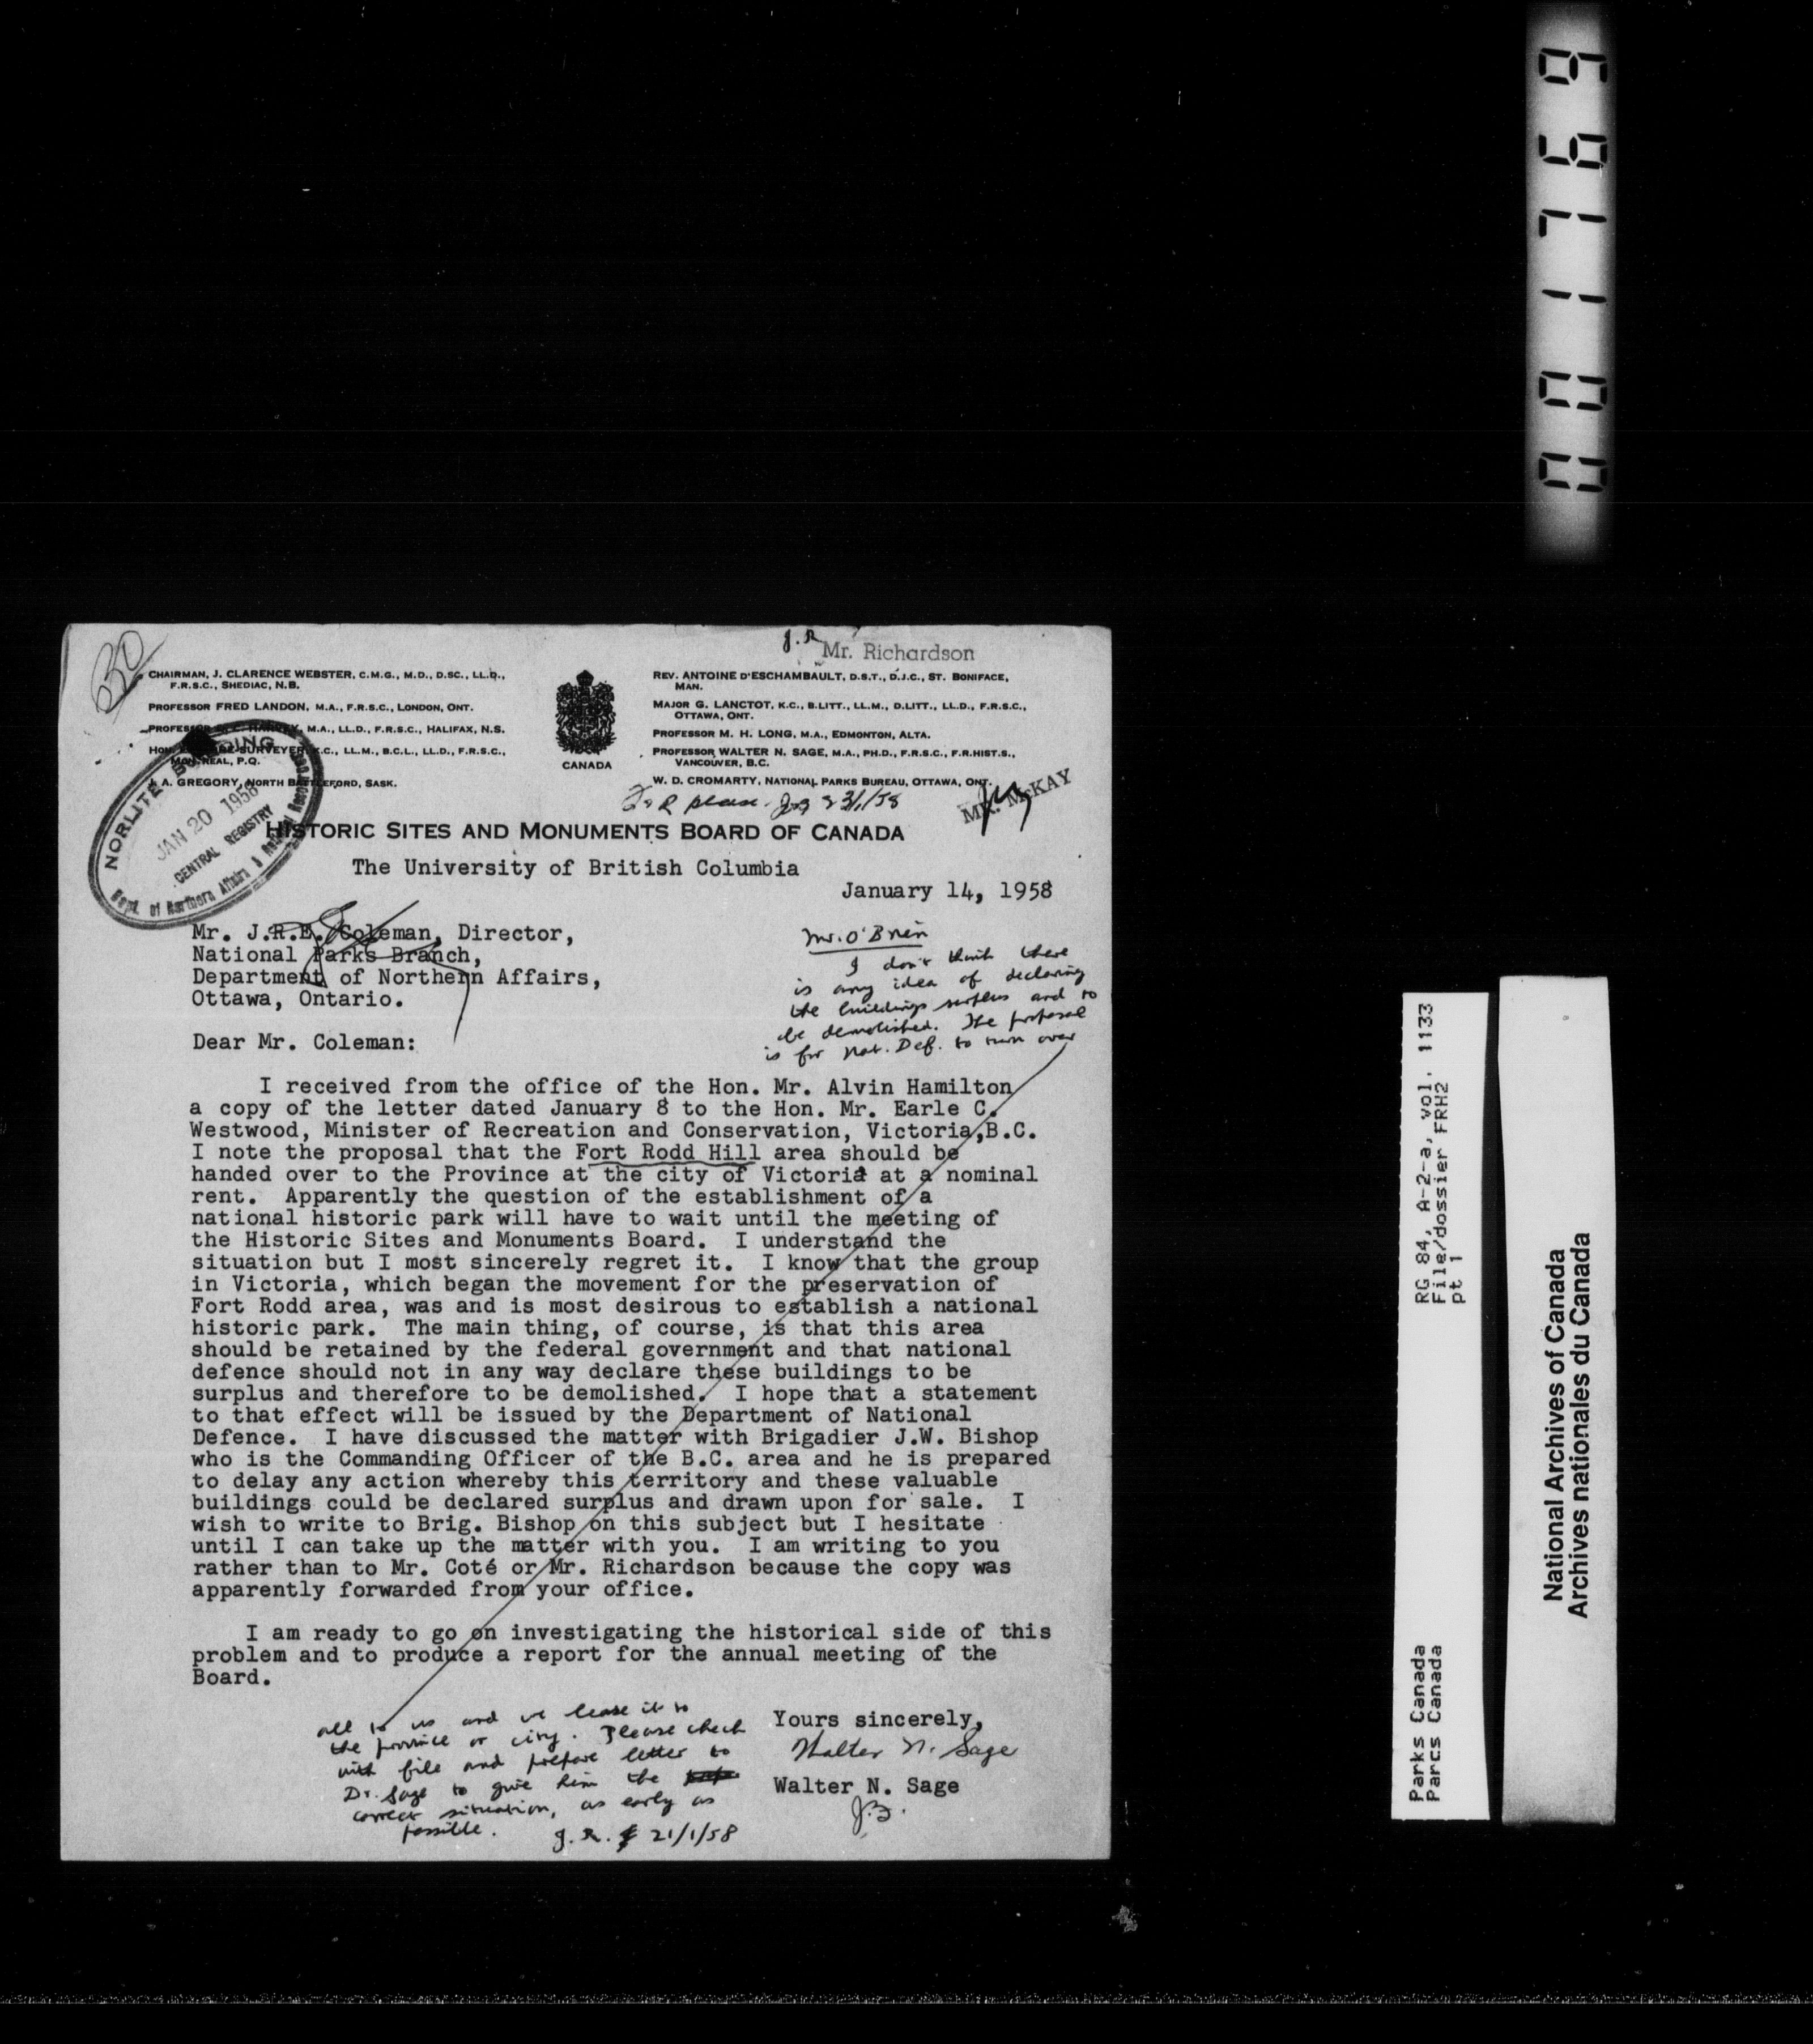 001769
J.R.
Mr. Richardson
CHAIRMAN, J. CLARENCE WEBSTER, C.M.G., M.D., D.SC., LL.D.,
F.R.S.C., SHEDIAC, N.B.
PROFESSOR FRED LANDON, M.A., F.R.S.C., LONDON, ONT.
PROFESSOR D. C. HARVEY, M.A., LL.D., F.R.S.C., HALIFAX, N.S.
HON. SURVEYER, K.C., LL.M., B.C.L., LL.D., F.R.S.C.,
MONTREAL, P.Q.
J. A. GREGORY, NORTH BATTLEFORD, SASK.
CANADA
REV. ANTOINE D'ESCHAMBAULT, D.S.T., D.J.C., ST. BONIFACE,
MAN.
MAJOR G. LANCTOT, K.C., B.LITT., LL.M., D.LITT., LL.D., F.R.S.C.,
OTTAWA, ONT.
PROFESSOR M. H. LONG, M.A., EDMONTON, ALTA.
PROFESSOR WALTER N. SAGE, M.A., PH.D., F.R.S.C., F.R.HIST.S.,
VANCOUVER, B.C.
W. D. CROMARTY, NATIONAL PARKS BUREAU, OTTAWA, ONT.
please 23/1/58
MR. McKAY
NORLITE BUILDING
JAN 20 1958
CENTRAL REGISTRY
Dept. of Northern Affairs & National Resources
HISTORIC SITES AND MONUMENTS BOARD OF CANADA
The University of British Columbia
January 14, 1958
Mr. J.R.E. Coleman, Director,
National Parks Branch,
Department of Northern Affairs,
Ottawa, Ontario.
Mr. O'Brien
I don't think there
is any idea of declaring
the buildings surplus and to
be demolished. The proposal
is for Nat. Def. to turn over
Dear Mr. Coleman:
I received from the office of the Hon. Mr. Alvin Hamilton
a copy of the letter dated January 8 to the Hon. Mr. Earle C.
Westwood, Minister of Recreation and Conservation, Victoria,B.C.
I note the proposal that the Fort Rodd Hill area should be
handed over to the Province at the city of Victoria at a nominal
rent. Apparently the question of the establishment of a
national historic park will have to wait until the meeting of
the Historic Sites and Monuments Board. I understand the
situation but I most sincerely regret it. I know that the group
in Victoria, which began the movement for the preservation of
Fort Rodd area, was and is most desirous to establish a national
historic park. The main thing, of course, is that this area
should be retained by the federal government and that national
defence should not in any way declare these buildings to be
surplus and therefore to be demolished. I hope that a statement
to that effect will be issued by the Department of National
Defence. I have discussed the matter with Brigadier J.W. Bishop
who is the Commanding Officer of the B.C. area and he is prepared
to delay any action whereby this territory and these valuable
buildings could be declared surplus and drawn upon for sale. I
wish to write to Brig. Bishop on this subject but I hesitate
until I can take up the matter with you. I am writing to you
rather than to Mr. Coté or Mr. Richardson because the copy was
apparently forwarded from your office.
I am ready to go on investigating the historical side of this
problem and to produce a report for the annual meeting of the
Board.
all to us and we lease it to
the province or city. Please check
with file and prepare letter to
Dr. Sage to give him the
correct situation, as early as
possible.
J.R. 21/1/58
Yours sincerely,
Walter N. Sage
Walter N. Sage
RG 84, A-2-a, vol. 1133
File/dossier FRH2
pt 1
Parks Canada
Parcs Canada
National Archives of Canada
Archives nationales du Canada